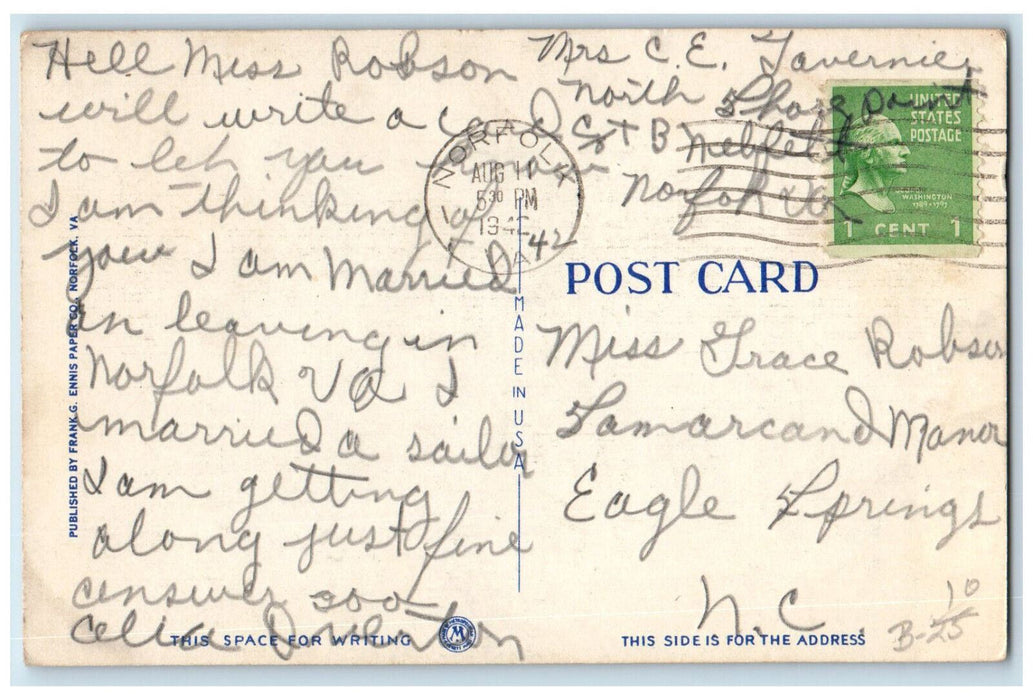 Hell Miss Robson
will write a card
to leh you know
I am thinking of
you I am Married
an leaving in
Norfolk VA I
married a sailor
I am getting
along just fine
answer soo
Celia Overton
Mrs C. E. Tavernier
North Shore point
Norfolk Va
NORFOLK
AUG 11
5 30 PM
1942
VA
42
UNITED
STATES
POSTAGE
WASHINGTON
1789-1797
1 CENT 1
POST CARD
Miss Grace Robson
Samarcand Manor
Eagle Springs
N.C.
10
B-25
PUBLISHED BY FRANK G. ENNIS PAPER CO., NORFOLK, VA
MADE IN USA
THIS SPACE FOR WRITING
M
THIS SIDE IS FOR THE ADDRESS